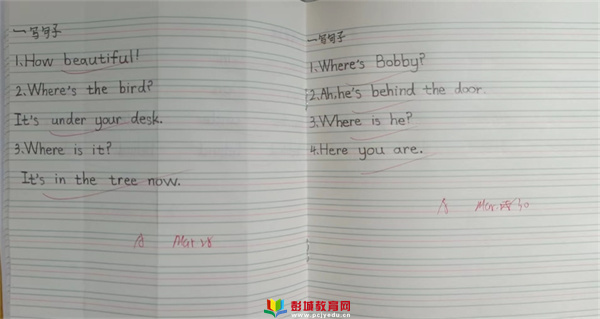 一写句子
1.How beautiful!
2.Where's the bird?
It's under your desk.
3.Where is it?
It's in the tree now.
A Mar 28
一写句子
1.Where's Bobby?
2.Ah,he's behind the door.
3.Where is he?
4.Here you are.
A Mar. 30
彭城教育网
www.pcjyedu.cn